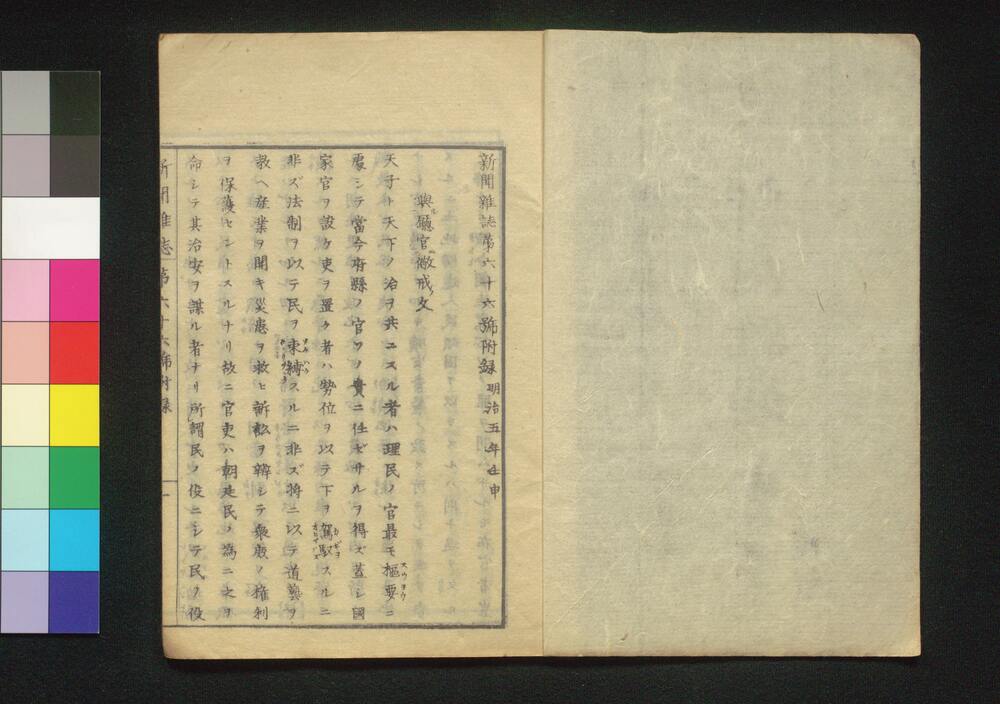 新聞雜誌第六十六號附録 明治五年壬申
與聽官儆戒文
天子ト天下ノ治ヲ共ニスル者ハ理民ノ官最モ樞要ニ
スウヨウ
處シテ當今府縣ノ官ソノ責ニ任ゼザルヲ得ズ蓋シ國
家官ヲ設ケ吏ヲ置ク者ハ勢位ヲ以テ下ヲ駕馭スルニ
非ズ法制ヲ以テ民ヲ束縛スルニ非ズ將ニ以テ道藝ヲ
教ヘ産業ヲ開キ災患ヲ救ヒ訴訟ヲ辨シテ衆庶ノ權利
ヲ保護セントスルナリ故ニ官吏ハ朝廷民ノ爲ニ之ヲ
命シテ其治安ヲ謀ル者ナリ所謂民ノ役ニシテ民ヲ役
新聞雜誌 第六十六號附録 一